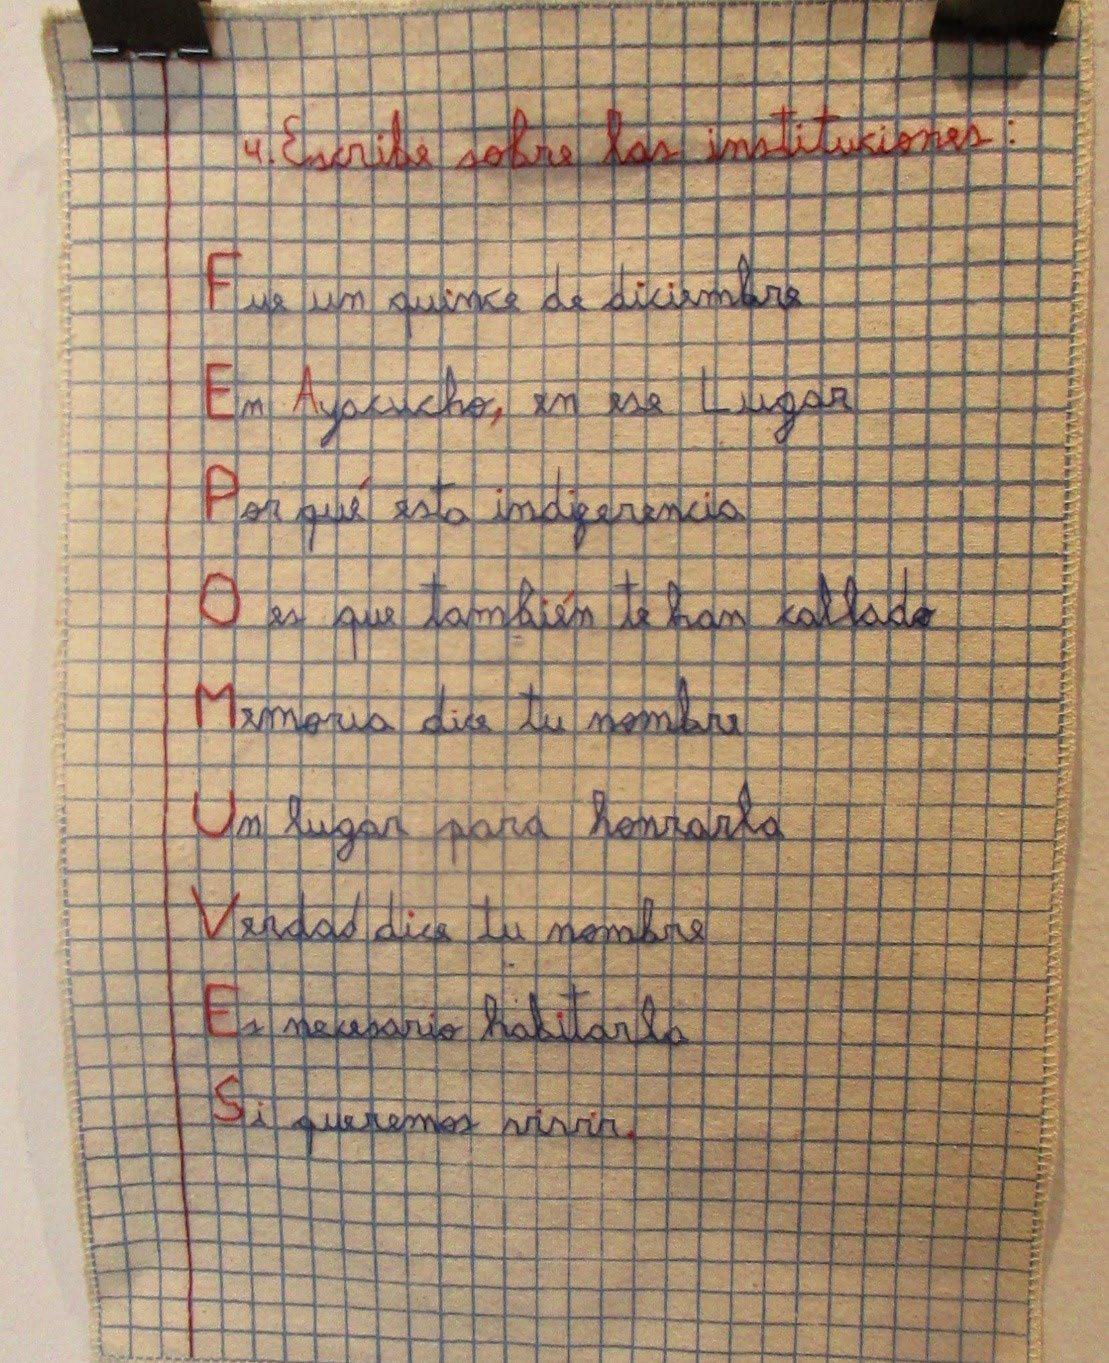 4. Escribe sobre las instituciones:
Fue un quince de diciembre
En Ayacucho, en ese Lugar
Por qué esta indigerencia
O es que también te han callado
Memoria dice tu nombre
Un lugar para honrarla
Verdad dice tu nombre
Es necesario habitarla
Si queremos vivir.